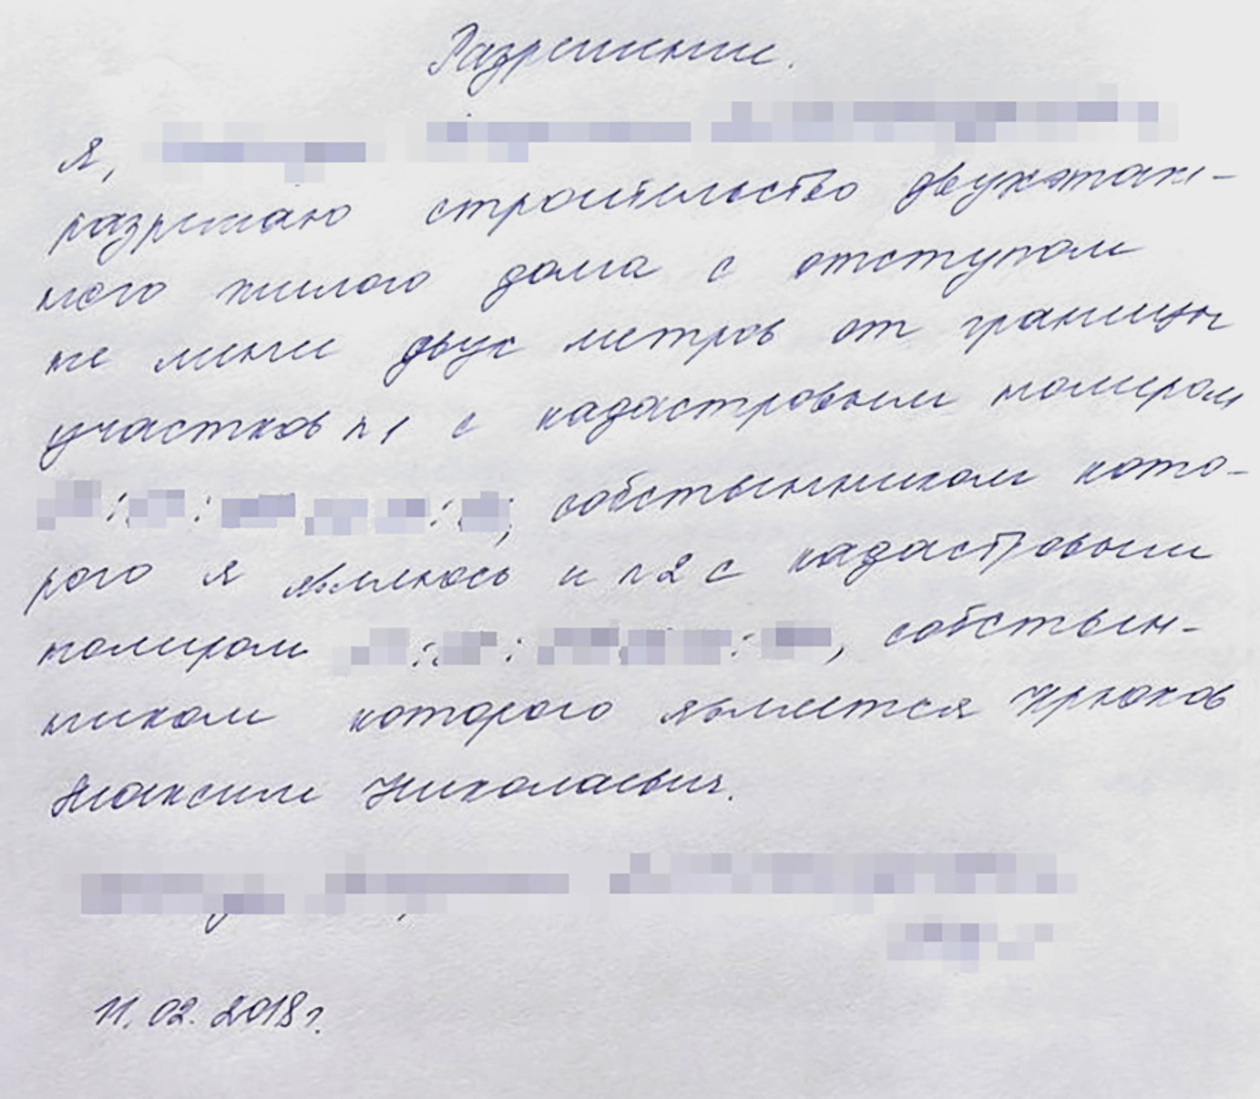 Разрешение.
Я,
разрешаю строительство двухэтаж-
ного жилого дома с отступом
не менее двух метров от границы
участков №1 с кадастровым номером
: : : , собственником кото-
рого я являюсь и №2 с кадастровым
номером : : : , собствен-
ником которого является Крюков
Максим Николаевич.
11.02.2018г.